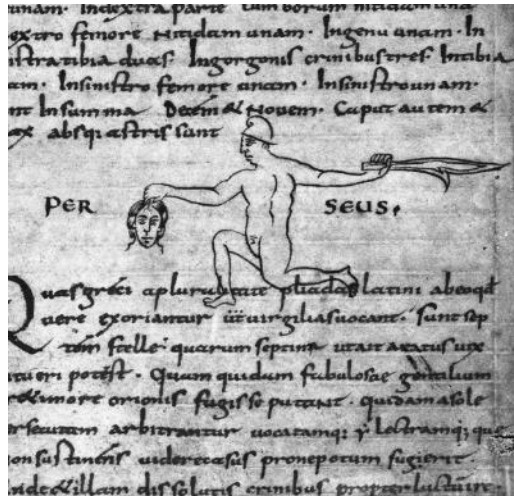 unam. In dextra parte
extro femore nitidam unam. Ingenu unam. In
istra tibia duas. In gorgonis crinibus tres. In tibia
am. In sinistro femore unam. In sinistro unam.
nt In summa Decem & Novem. Caput autem &
ex absq; astris sunt
PER SEUS.
Quas greci a pluralitate pliadas latini abeoqđ
vere exoriantur virgilias vocant. Sunt sep
tem stelle quarum septima utait aratus vix
intueri potest. Quam quidam fabulosae gentilium
amore orionis fugisse putant. quidam a sole
persecutam arbitrantur vocatamq; lectramq; que
non sustinens videre casus pronepotum fugerit
unde & illam dissolutis crinibus propter luctum.